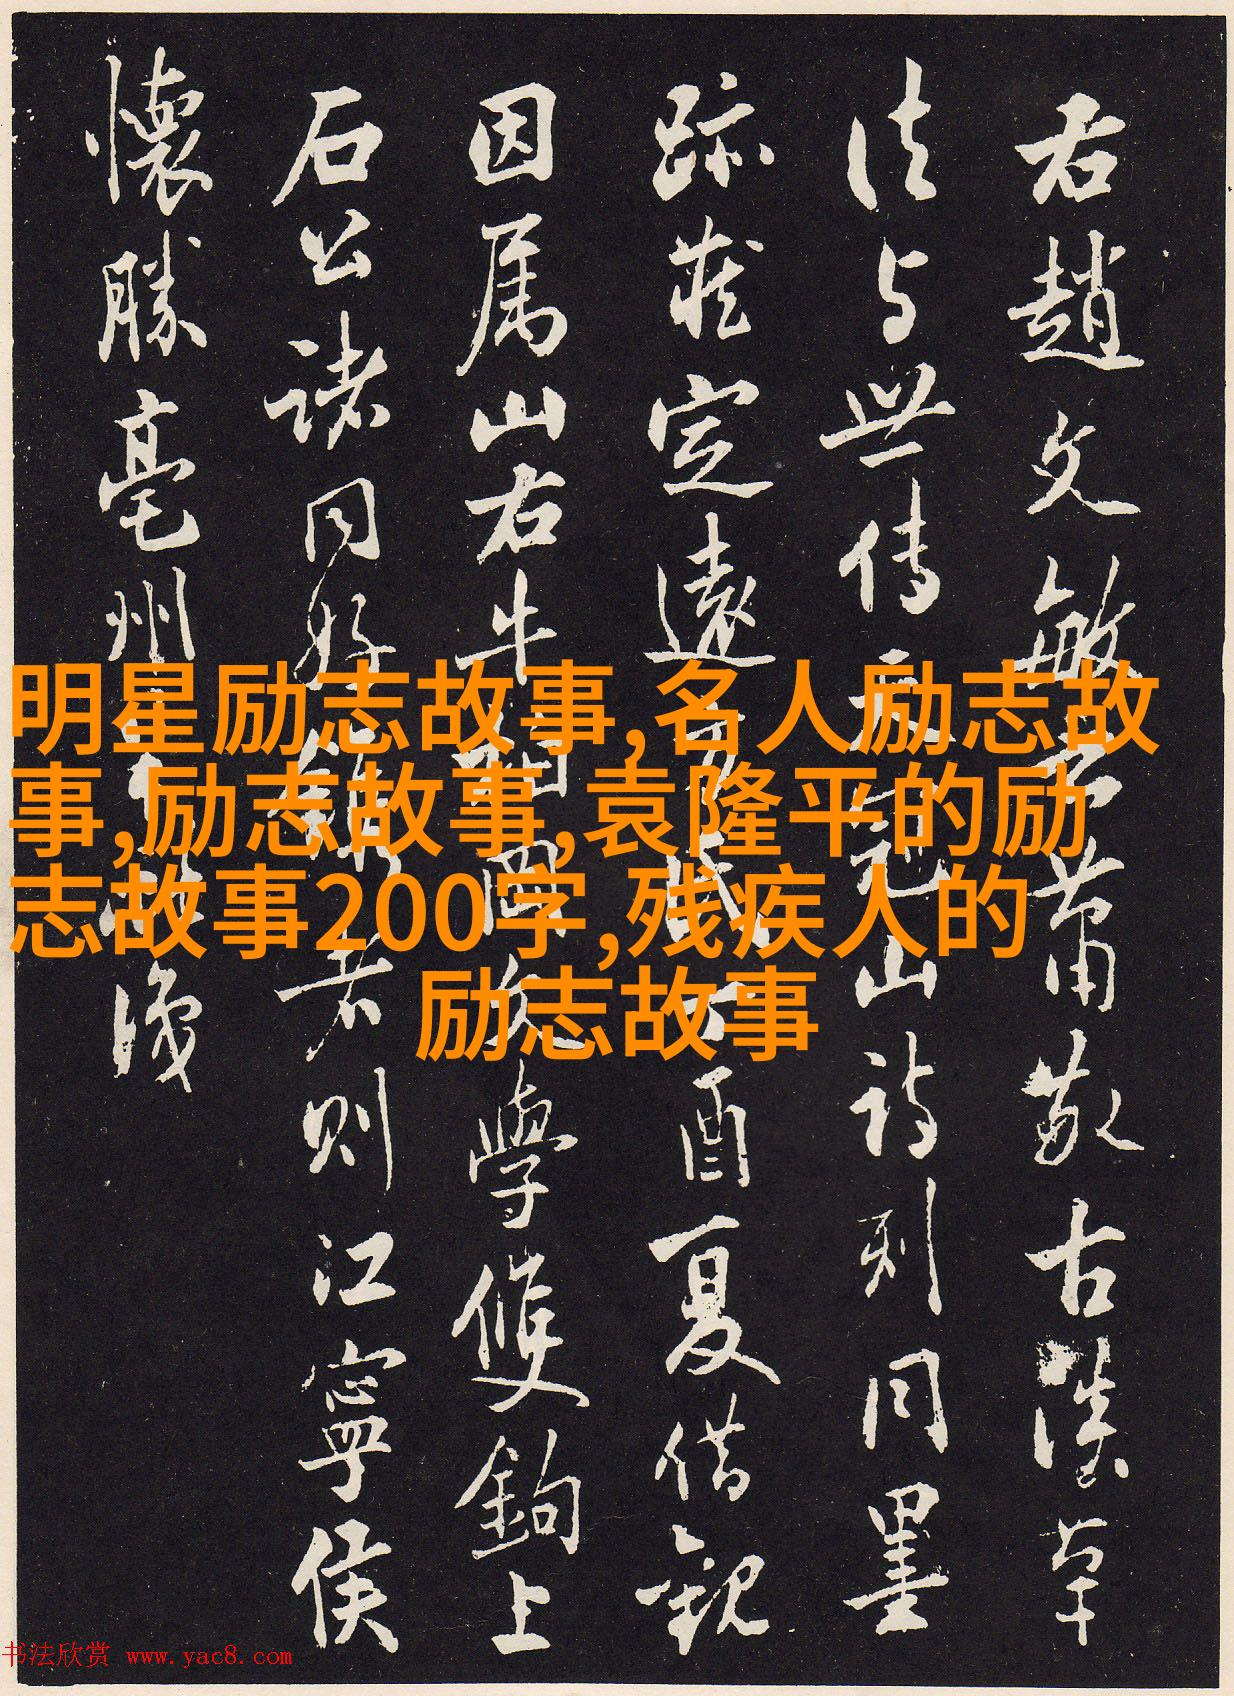 右趙文敏古草
法与世傳天冠山詩刻同墨
跡藏定遠酉夏借観
因属山右牛學雙鉤上
石公諸同好者則江寧侯
懷勝亳州
明星励志故事,名人励志故
事,励志故事,袁隆平的励
志故事200字,残疾人的
励志故事
书法欣赏 www.yac8.com